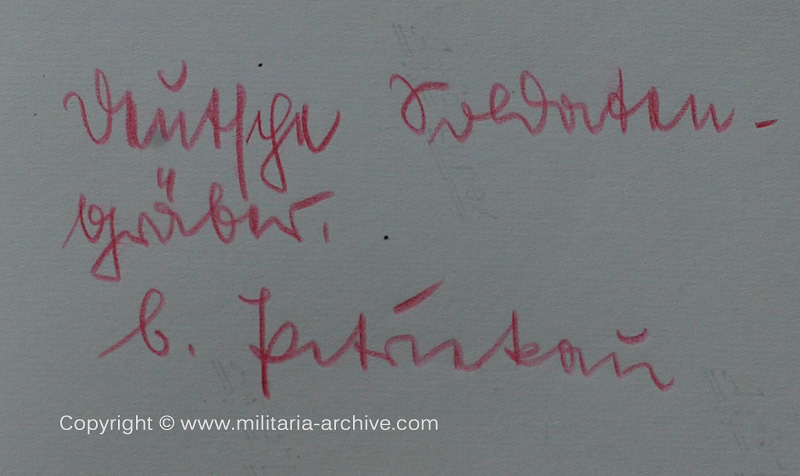 Deutsche Soldaten-
gräber.
b. Petrikau
Copyright © www.militaria-archive.com